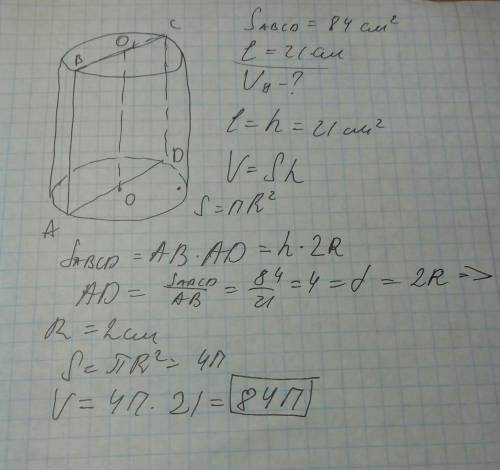 S ABCD = 84 см²
l = 21 см
Vц - ?
l = h = 21 см²
V = Sh
S = πR²
O₁
C
B
D
O
A
S ABCD = AB · AD = h · 2R
AD = S ABCD / AB = 84 / 21 = 4 = d = 2R =>
R = 2 см
S = πR² = 4π
V = 4π · 21 = 84π